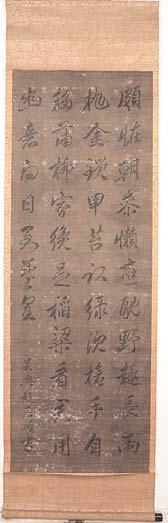 頗怪朝參懶應耽野趣長雨
拋金鎖甲苔臥綠沉槍手自
移蒲柳家纔足稻粱看君用
幽意白日到羲皇
吳興趙孟頫書